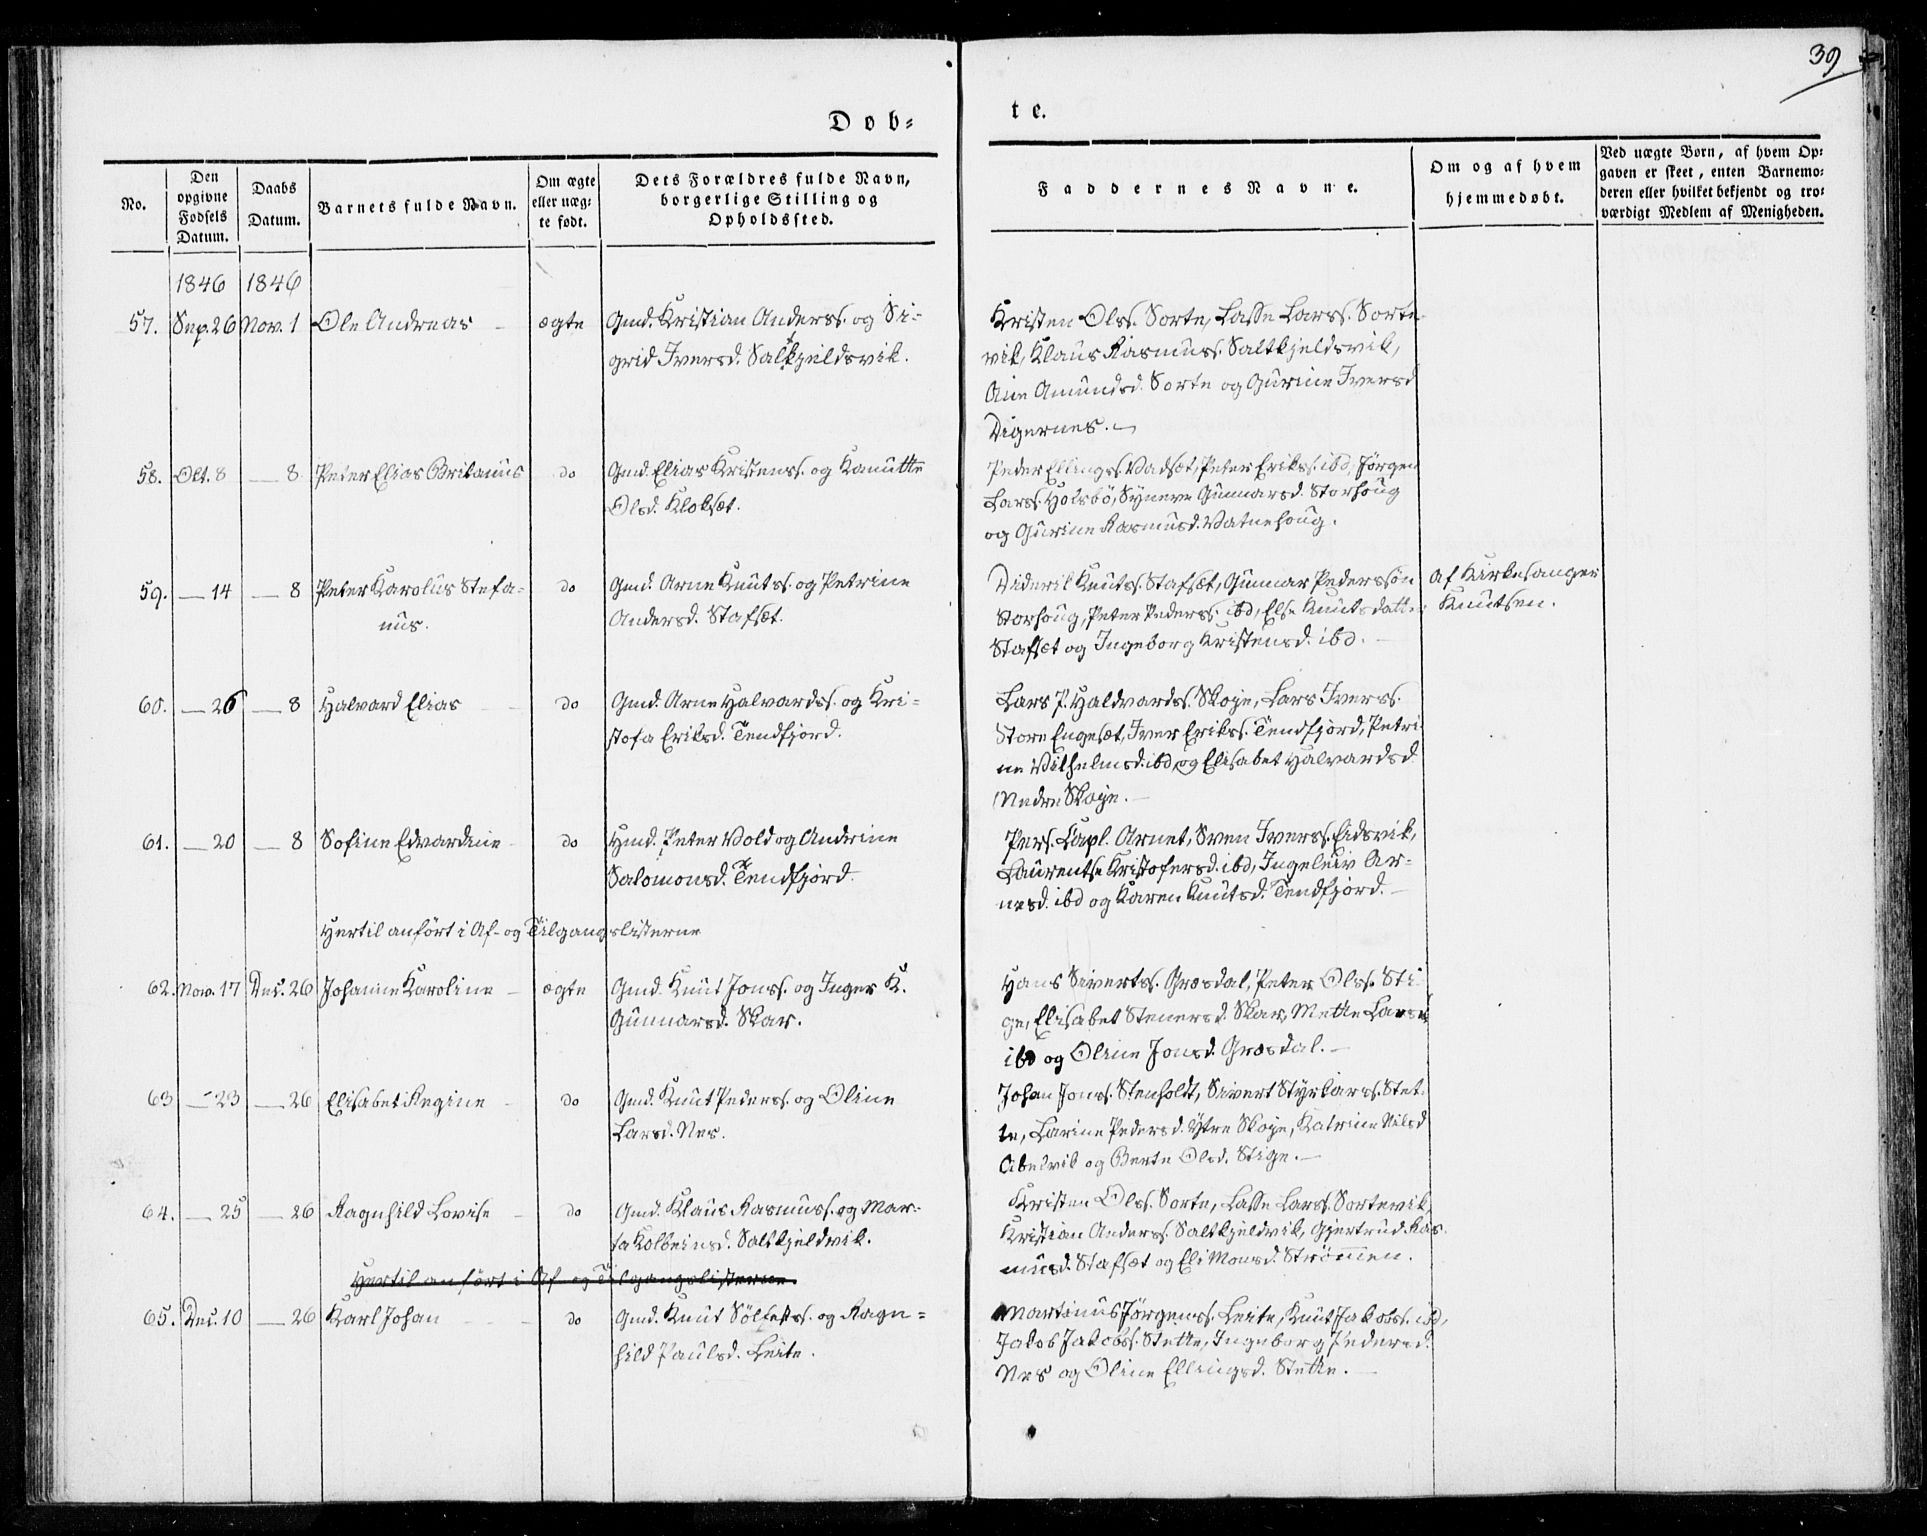 39
Døb-
te.
No.
Den opgivne Fødsels Datum.
Daabs Datum.
Barnets fulde Navn.
Om ægte eller uægte født.
Dets Forældres fulde Navn, borgerlige Stilling og Opholdssted.
Faddernes Navne.
Om og af hvem hjemmedøbt.
Ved uægte Børn, af hvem Opgaven er skeet, enten Barnemoderen eller hvilket bekjendt og troværdigt Medlem af Menigheden.
1846 1846
57. Sep. 26 Nov. 1 Ole Andreas ægte Gmd. Kristian Anderss. og Si-
grid Iversd. Saltkjeldsvik.
Kristen Olss. Sorte, Lasse Larss. Sorte-
vik, Klaus Rasmuss. Saltkjeldsvik,
Ane Amundsd. Sorte og Gurine Iversd
Digernes.
58. Okt. 8 — 8 Peter Elias Britanus do Gmd. Elias Kristenss. og Kanutte
Olsd. Kloksæt.
Peder Ellingss. Vadsæt, Peter Erikss. ibd, Jørgen
Larss. Holsbö, Synneve Gunnarsd. Storhoug
og Gurine Rasmusd. Vatnehoug.
59. — 14 — 8 Peter Karolus Stefa-
nus.
do Gmd. Arne Knutss. og Petrine
Andersd. Stafsæt.
Diderik Knutss. Stafsæt, Gunnar Pederssøn
Storhoug, Peter Pederss. ibd, Else Knutsdatter
Stafsæt og Ingeborg Kristensd. ibd. —
Af Kirkesanger
Knutsen.
60. — 26 — 8 Halvard Elias do Gmd. Arne Halvardss. og Kri-
stofa Eriksd. Tendfjord.
Lars P. Haldvardss. Skoje, Lars Iverss.
Store Engesæt, Iver Erikss. Tendfjord, Petri-
ne Vilhelmsd. ibd, og Elisabet Halvardsd
Nedre Skoje. —
61. — 20 — 8 Sofine Edvardine do Hmd. Peter Vold og Andrine
Salomonsd. Tendfjord.
Pers. Capl. Arnet, Sven Iverss. Eidsvik,
Laurentse Kristofersd. ibd, Ingeleiv Ar-
nesd. ibd og Karen Knutsd. Tendfjord. —
Hertil anført i Af- og Tilgangslisterne
62. Nov. 17 Dec. 26 Johanne Karoline — ægte Gmd. Knut Jonss. og Inger K.
Gunnarsd. Skar.
Hans Sivertss. Grøsdal, Peter Olss. Sti-
ge, Elisabet Stenersd. Skar, Mette Larsd
ibd og Oline Jonsd. Grøsdal. —
63 — 23 — 26 Elisabet Regine do Gmd. Knut Pederss. og Oline
Larsd. Nes.
Johan Jonss. Stenholdt, Sivert Styrkarss. Stet-
te, Larine Pedersd. Ytre Skoje, Katrine Nilsd
Abelvik og Berte Olsd. Stige. —
64. — 25 — 26 Ragnhild Lovise do Gmd. Klaus Rasmuss. og Mar-
ta Kolbeinsd. Saltkjeldvik.
Kristen Olss. Sorte, Lasse Larss. Sortevik,
Kristian Anderss. Saltkjeldvik, Gjertrud Ras-
musd. Stafsæt og Eli Monsd. Strømmen.
Hertil anført i Af- og Tilgangslisterne.
65. Dec. 10 — 26 Karl Johan do Gmd. Knut Sölfestss. og Ragn-
hild Paulsd. Leite.
Martinus Jørgenss. Leite, Knut Jakobss. ibd,
Jakob Jakobss. Stette, Ingeborg Pedersd.
Nes og Oline Ellingsd. Stette. —